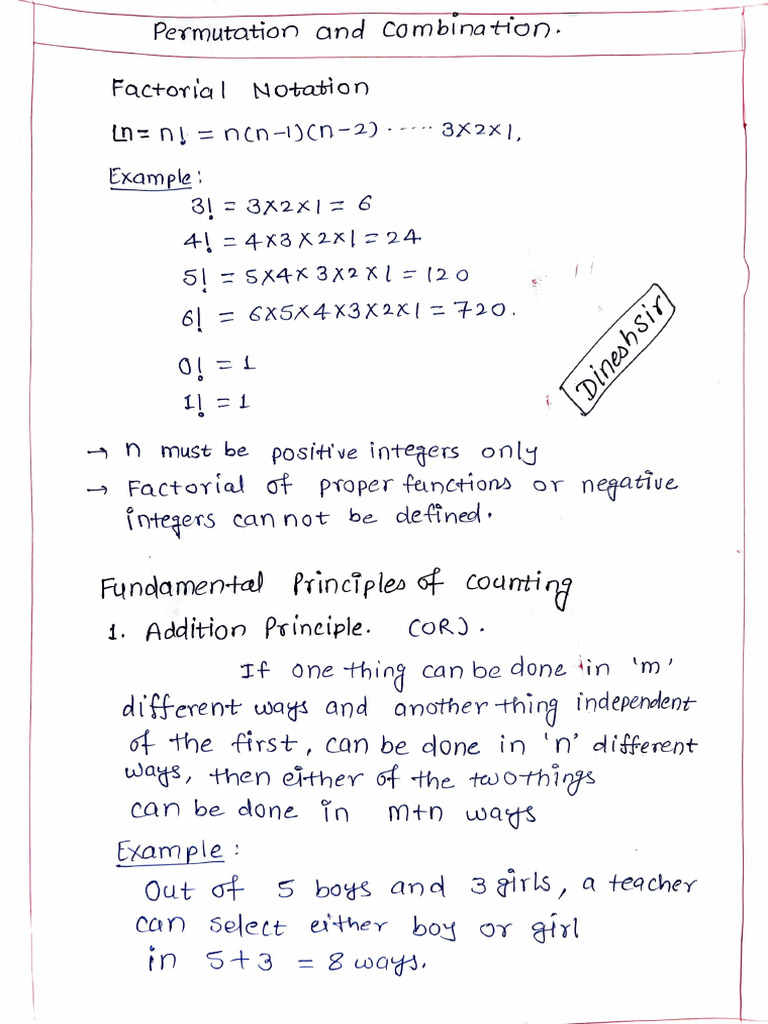 Permutation and Combination.
Factorial Notation
⌊n = n! = n(n-1)(n-2) ····· 3×2×1.
Example:
3! = 3×2×1 = 6
4! = 4×3×2×1 = 24
5! = 5×4×3×2×1 = 120
6! = 6×5×4×3×2×1 = 720.
Dineshsir
0! = 1
1! = 1
→ n must be positive integers only
→ Factorial of proper functions or negative
integers can not be defined.
Fundamental Principles of counting
1. Addition Principle. (OR).
If one thing can be done in 'm'
different ways and another thing independent
of the first, can be done in 'n' different
ways, then either of the two things
can be done in m+n ways
Example:
Out of 5 boys and 3 girls, a teacher
can select either boy or girl
in 5+3 = 8 ways.